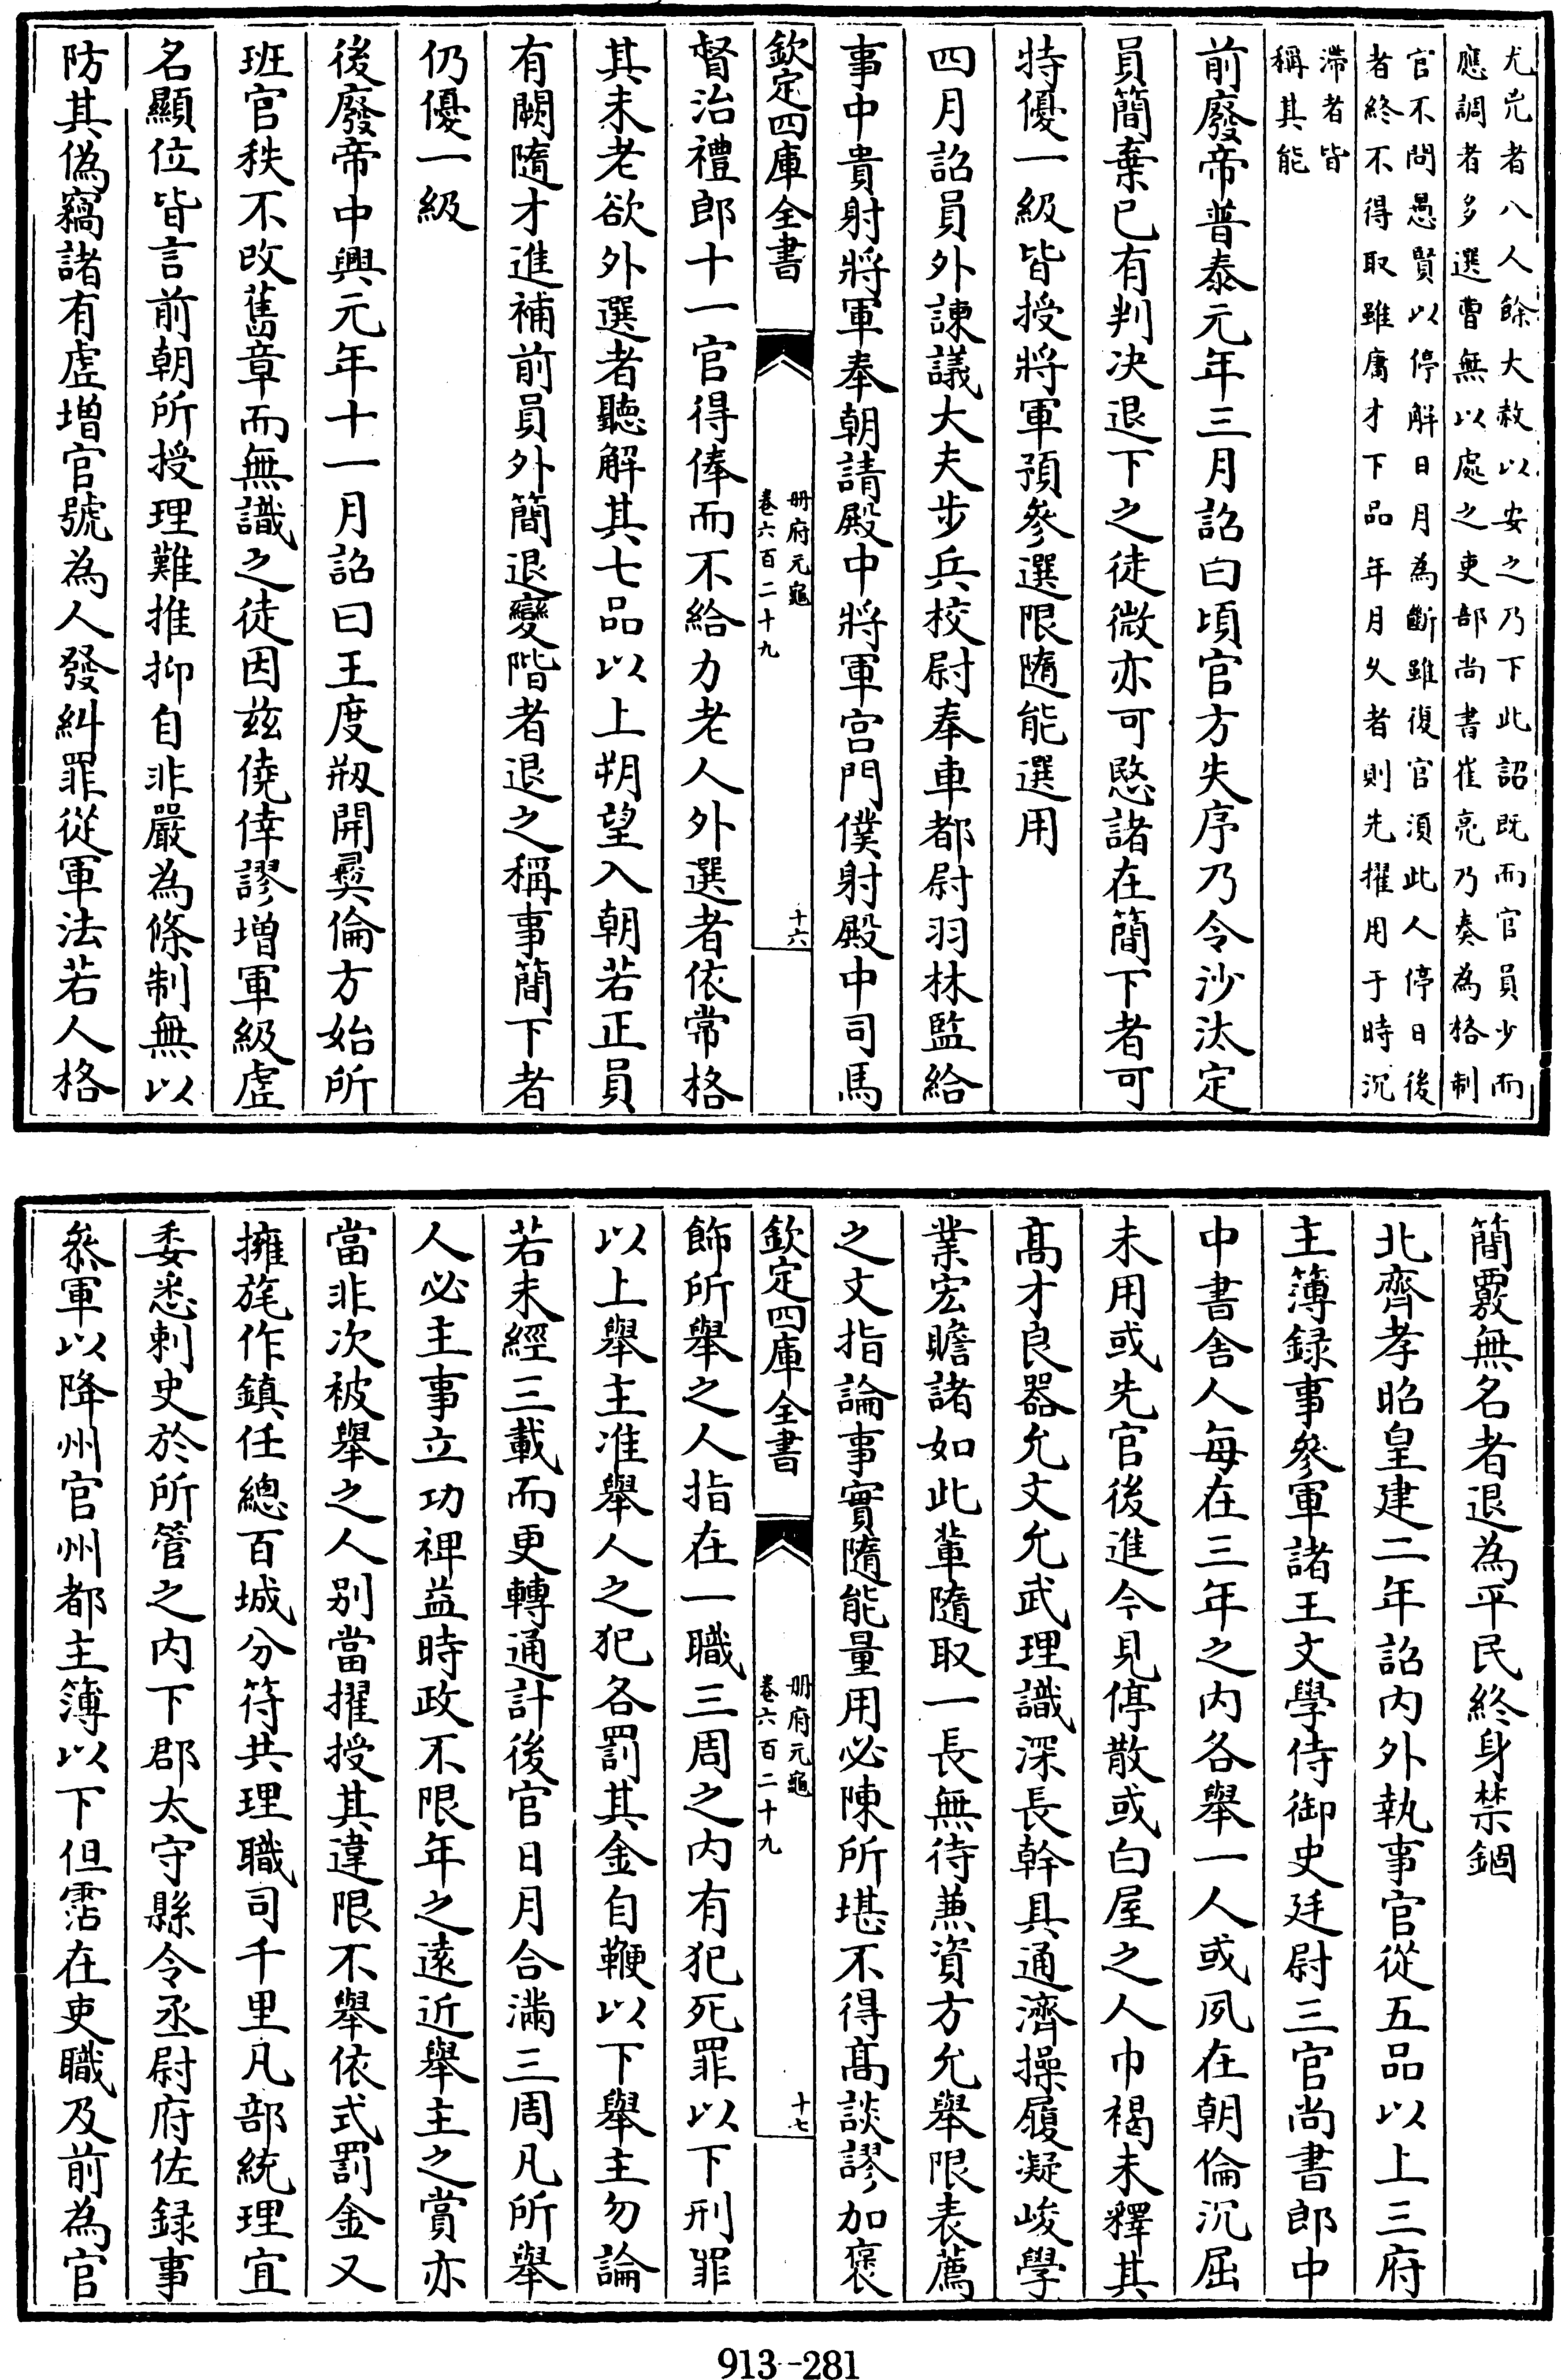 尤兇者八人餘大赦以安之乃下此詔既而官員少而
應調者多選曹無以處之吏部尚書崔亮乃奏為格制
官不問愚賢以停解日月為斷雖復官須此人停日後
者終不得取雖庸才下品年月久者則先擢用于時沉
滯者皆
稱其能
前廢帝普泰元年三月詔曰頃官方失序乃令沙汰定
員簡棄已有判決退下之徒微亦可愍諸在簡下者可
特優一級皆授將軍預參選限隨能選用
四月詔員外諫議大夫步兵校尉奉車都尉羽林監給
事中貴射將軍奉朝請殿中將軍宮門僕射殿中司馬
欽定四庫全書
冊府元龜
卷六百二十九
十六
督治禮郎十一官得俸而不給力老人外選者依常格
其未老欲外選者聽解其七品以上朔望入朝若正員
有闕隨才進補前員外簡退變階者退之稱事簡下者
仍優一級
後廢帝中興元年十一月詔曰王度剏開彛倫方始所
班官秩不改舊章而無識之徒因兹僥倖謬增軍級虛
名顯位皆言前朝所授理難推抑自非嚴為條制無以
防其偽竊諸有虛增官號為人發糾罪從軍法若人格
簡覈無名者退為平民終身禁錮
北齊孝昭皇建二年詔内外執事官從五品以上三府
主薄録事參軍諸王文學侍御史廷尉三官尚書郎中
中書舍人每在三年之内各舉一人或夙在朝倫沉屈
未用或先官後進今見停散或白屋之人巾褐未釋其
髙才良器允文允武理識深長幹具通濟操履凝峻學
業宏贍諸如此輩隨取一長無待兼資方允舉限表薦
之文指論事實隨能量用必陳所堪不得髙談謬加褒
欽定四庫全書
冊府元龜
卷六百二十九
十七
飾所舉之人指在一職三周之内有犯死罪以下刑罪
以上舉主准舉人之犯各罰其金自鞭以下舉主勿論
若未經三載而更轉通計後官日月合滿三周凡所舉
人必主事立功裨益時政不限年之遠近舉主之賞亦
當非次被舉之人別當擢授其違限不舉依式罰金又
擁旄作鎮任總百城分符共理職司千里凡部統理宜
委悉刺史於所管之内下郡太守縣令丞尉府佐録事
叅軍以降州官州都主簿以下但霑在吏職及前為官
913-281